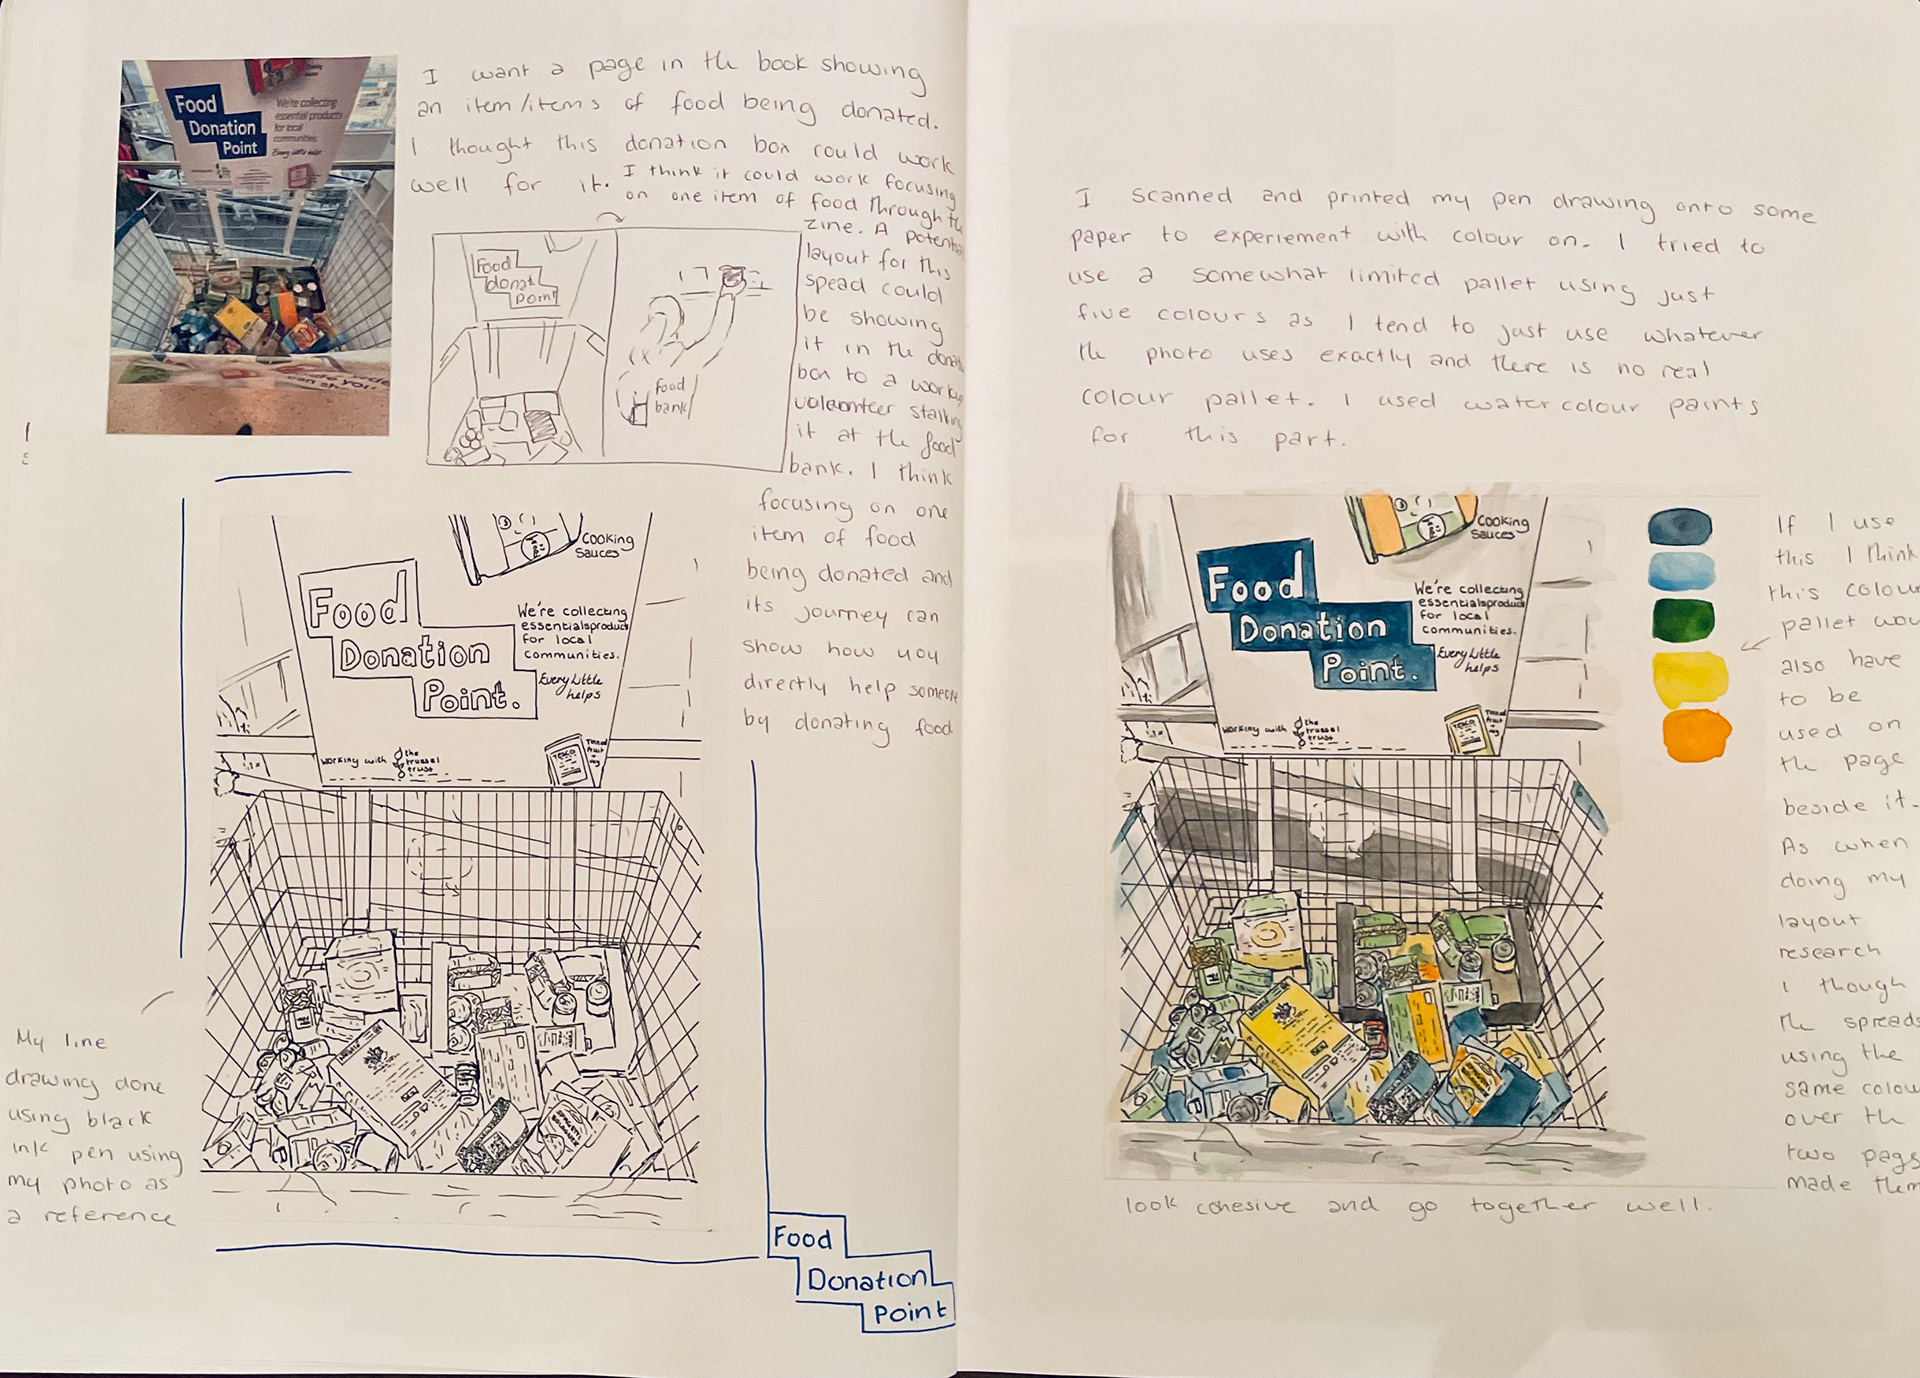 Food
Donation
Point
We're collecting
essential products
for local
communities.
Every little helps
I want a page in the book showing
an item/items of food being donated.
I thought this donation box could work
well for it. I think it could work focusing
on one item of food through the
zine. A potential
layout for this
spead could
be showing
it in the donat
box to a work
valeonteer stalking
it at the food
bank. I think
focusing on one
item of food
being donated and
its journey can
show how you
directly help someone
by donating food
Food
donat
point
Food
bank
Cooking
Sauces
Food
Donation
Point.
We're collecting
essentialsproduct
for local
communities.
Every Little
helps
working with the
trussel
trust
TESCO
My line
drawing done
using black
ink pen using
my photo as
a reference
Food
Donation
Point
I scanned and printed my pen drawing onto some
paper to experiement with colour on. I tried to
use a somewhat limited pallet using just
five colours as I tend to just use whatever
the photo uses exactly and there is no real
colour pallet. I used watercolour paints
for this part.
Cooking
Sauces
Food
Donation
Point.
We're collecting
essentialsproduct
for local
communities.
Every Little
helps
working with the
trussel
trust
TESCO
If I use
this I think
this colour
pallet wou
also have
to be
used on
the page
beside it.
As when
doing my
layout
research
I though
the spreads
using the
same colou
over the
two pags
made them
look cohesive and go together well.